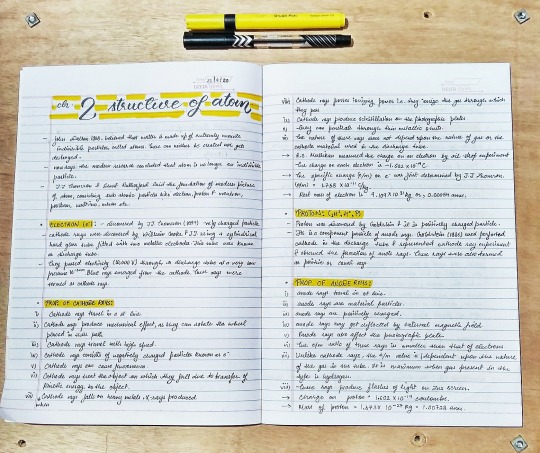 22/6/20
ch: 2 structure of atom
- John Dalton 1808, believed that matter is made up of extremely minute
indivisible particles called atoms. These can neither be created nor get
destroyed.
- now days the modern research concluded that atom is no longer an indivisible
particle.
- J.J Thomson & Ernest Rutherford laid the foundation of modern picture
of atom, consisting sub atomic particles like electron, proton & neutron,
positron, neutrino, meson etc.
• ELECTRON (e⁻) :- discovered by J.J. Thomson (1897) -vely charged particle.
- cathode rays were discovered by William Crooke & J.J using a cylindrical
hard glass tube fitted with two metallic electrode. This tube was known
as discharge tube.
- They passed electricity (10,000 V) through a discharge tube at a very low
pressure. Blue rays emerged from the cathode. These rays were
termed as cathode rays.
• PROP. OF CATHODE RAYS:
i) Cathode rays travel in a st line.
ii) Cathode rays produce mechanical effect, as they can rotate the wheel
placed in their path.
iii) Cathode rays travel with high speed.
iv) Cathode rays consists of negatively charged particles known as e⁻
v) Cathode rays can cause fluorescence.
vi) Cathode rays heat the object on which they fall due to transfer of
kinetic energy to the object.
vii) Cathode rays falls on heavy metals, X-rays produced
when
viii) Cathode rays posses ionizing power i.e. they ionize the gas through which
they pass
ix) Cathode rays produce scintillation on the photographic plates
x) They can penetrate through thin metallic sheets.
xi) The nature of these rays does not depend upon the nature of gas or the
cathode material used in the discharge tube
→ R.S. Mullikan measured the charge on an electron by oil drop experiment
The charge on each electron is -1.602 × 10⁻¹⁹ C.
→ The specific charge (e/m) on e⁻ was first determined by J.J Thomson.
(e/m) = 1.758 × 10¹¹ C/kg
→ Rest mass of electron is 9.109 × 10⁻³¹ kg or, 0.000549 amu.
• PROTON
- Proton was discovered by Goldstein & it is positively charged particle
- It is a component particle of anode rays. Goldstein (1886) used perforated
cathode in the discharge tube & repeated cathode ray experiment
& observed the formation of anode rays. These rays were also termed
as positive or canal rays
• PROP OF ANODE RAYS:
i) anode rays travel in st line.
ii) anode rays are material particles.
iii) anode rays are positively charged.
iv) anode rays may get deflected by external magnetic field
v) Anode rays also affect the photographic plate.
vi) The e/m ratio of these rays is smaller than that of electrons
vii) Unlike cathode rays, the e/m value is dependent upon the nature
of the gas in the tube. It is maximum when gas present in the
tube is hydrogen.
viii) These rays produce flashes of light on ZnS screen.
→ Charge on proton = 1.602 × 10⁻¹⁹ coulombs.
→ Mass of proton = 1.673 × 10⁻²⁷ kg = 1.00728 amu.